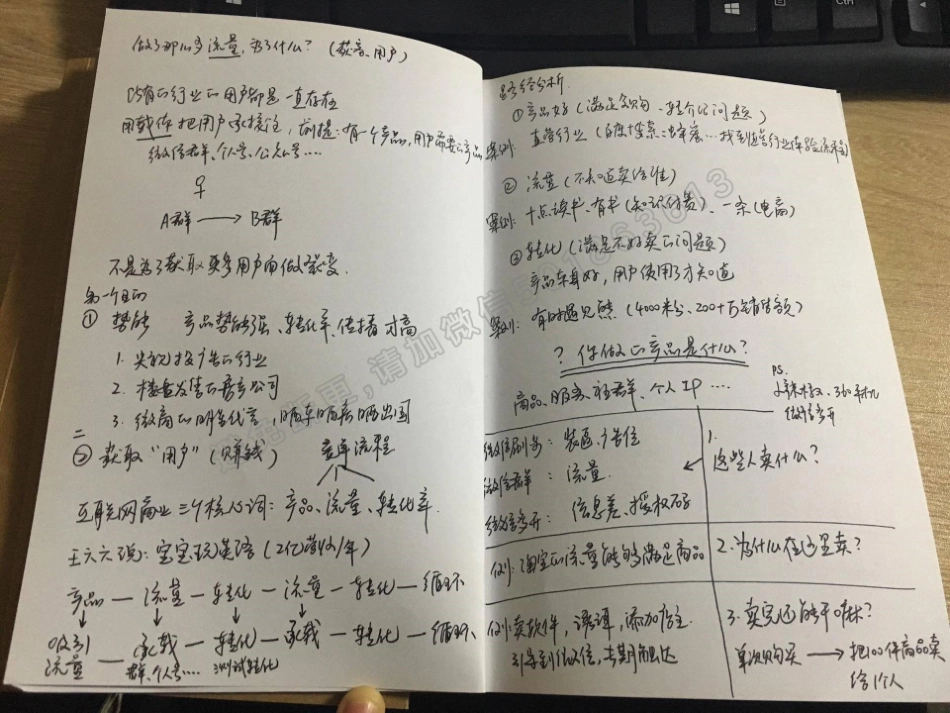 做了那么多流量,为了什么?(获客、用户)
所有的行业的用户都是一直存在
用载体把用户承接住,前提:有一个产品,用户需要的产品
微信群、个人号、公众号....
A群 → B群
不是为了获取更多用户而做裂变.
第一个目的
① 势能 产品势能强、转化率、传播才高
1. 央视投广告的行业
2. 楼盘发售的房产公司
3. 微商的明星代言,晒车晒房晒出国
二
② 获取“用户”(赚钱) 变単流程
互联网商业三个核心词:产品、流量、转化率.
王六六说:宝宝玩英语(2亿营收/年)
产品—流量—转化—流量—转化—循环
吸引流量—承载—转化—承载—转化—循环
群、个人号.... 测试转化
路径分析
①产品好(满足复购、转介绍问题)
案例: 直营行业(百度搜索、蜂蜜...找到直营行业体验流程)
② 流量(不知道卖给谁)
案例: 十点读书、有书(知识付费)、一条(电商)
③转化(满足不好卖的问题)
产品本身好,用户使用了才知道
案例: 有时遇见熊(4000米分、200+万销售额)
? 你做的产品是什么?
商品、服务、社群、个人IP ....
PS.
360手机
微信多开
微信群: 流量.
微信多开: 信息差、授权码
1.
这些人卖什么?
例:淘宝的流量能够满足商品
2.为什么在这里卖?
例:卖软件,课程,添加信主
引导到微信,长期触达
3.卖完还能干嘛?
单次购买 → 把100件商品卖给1个人
请加微信